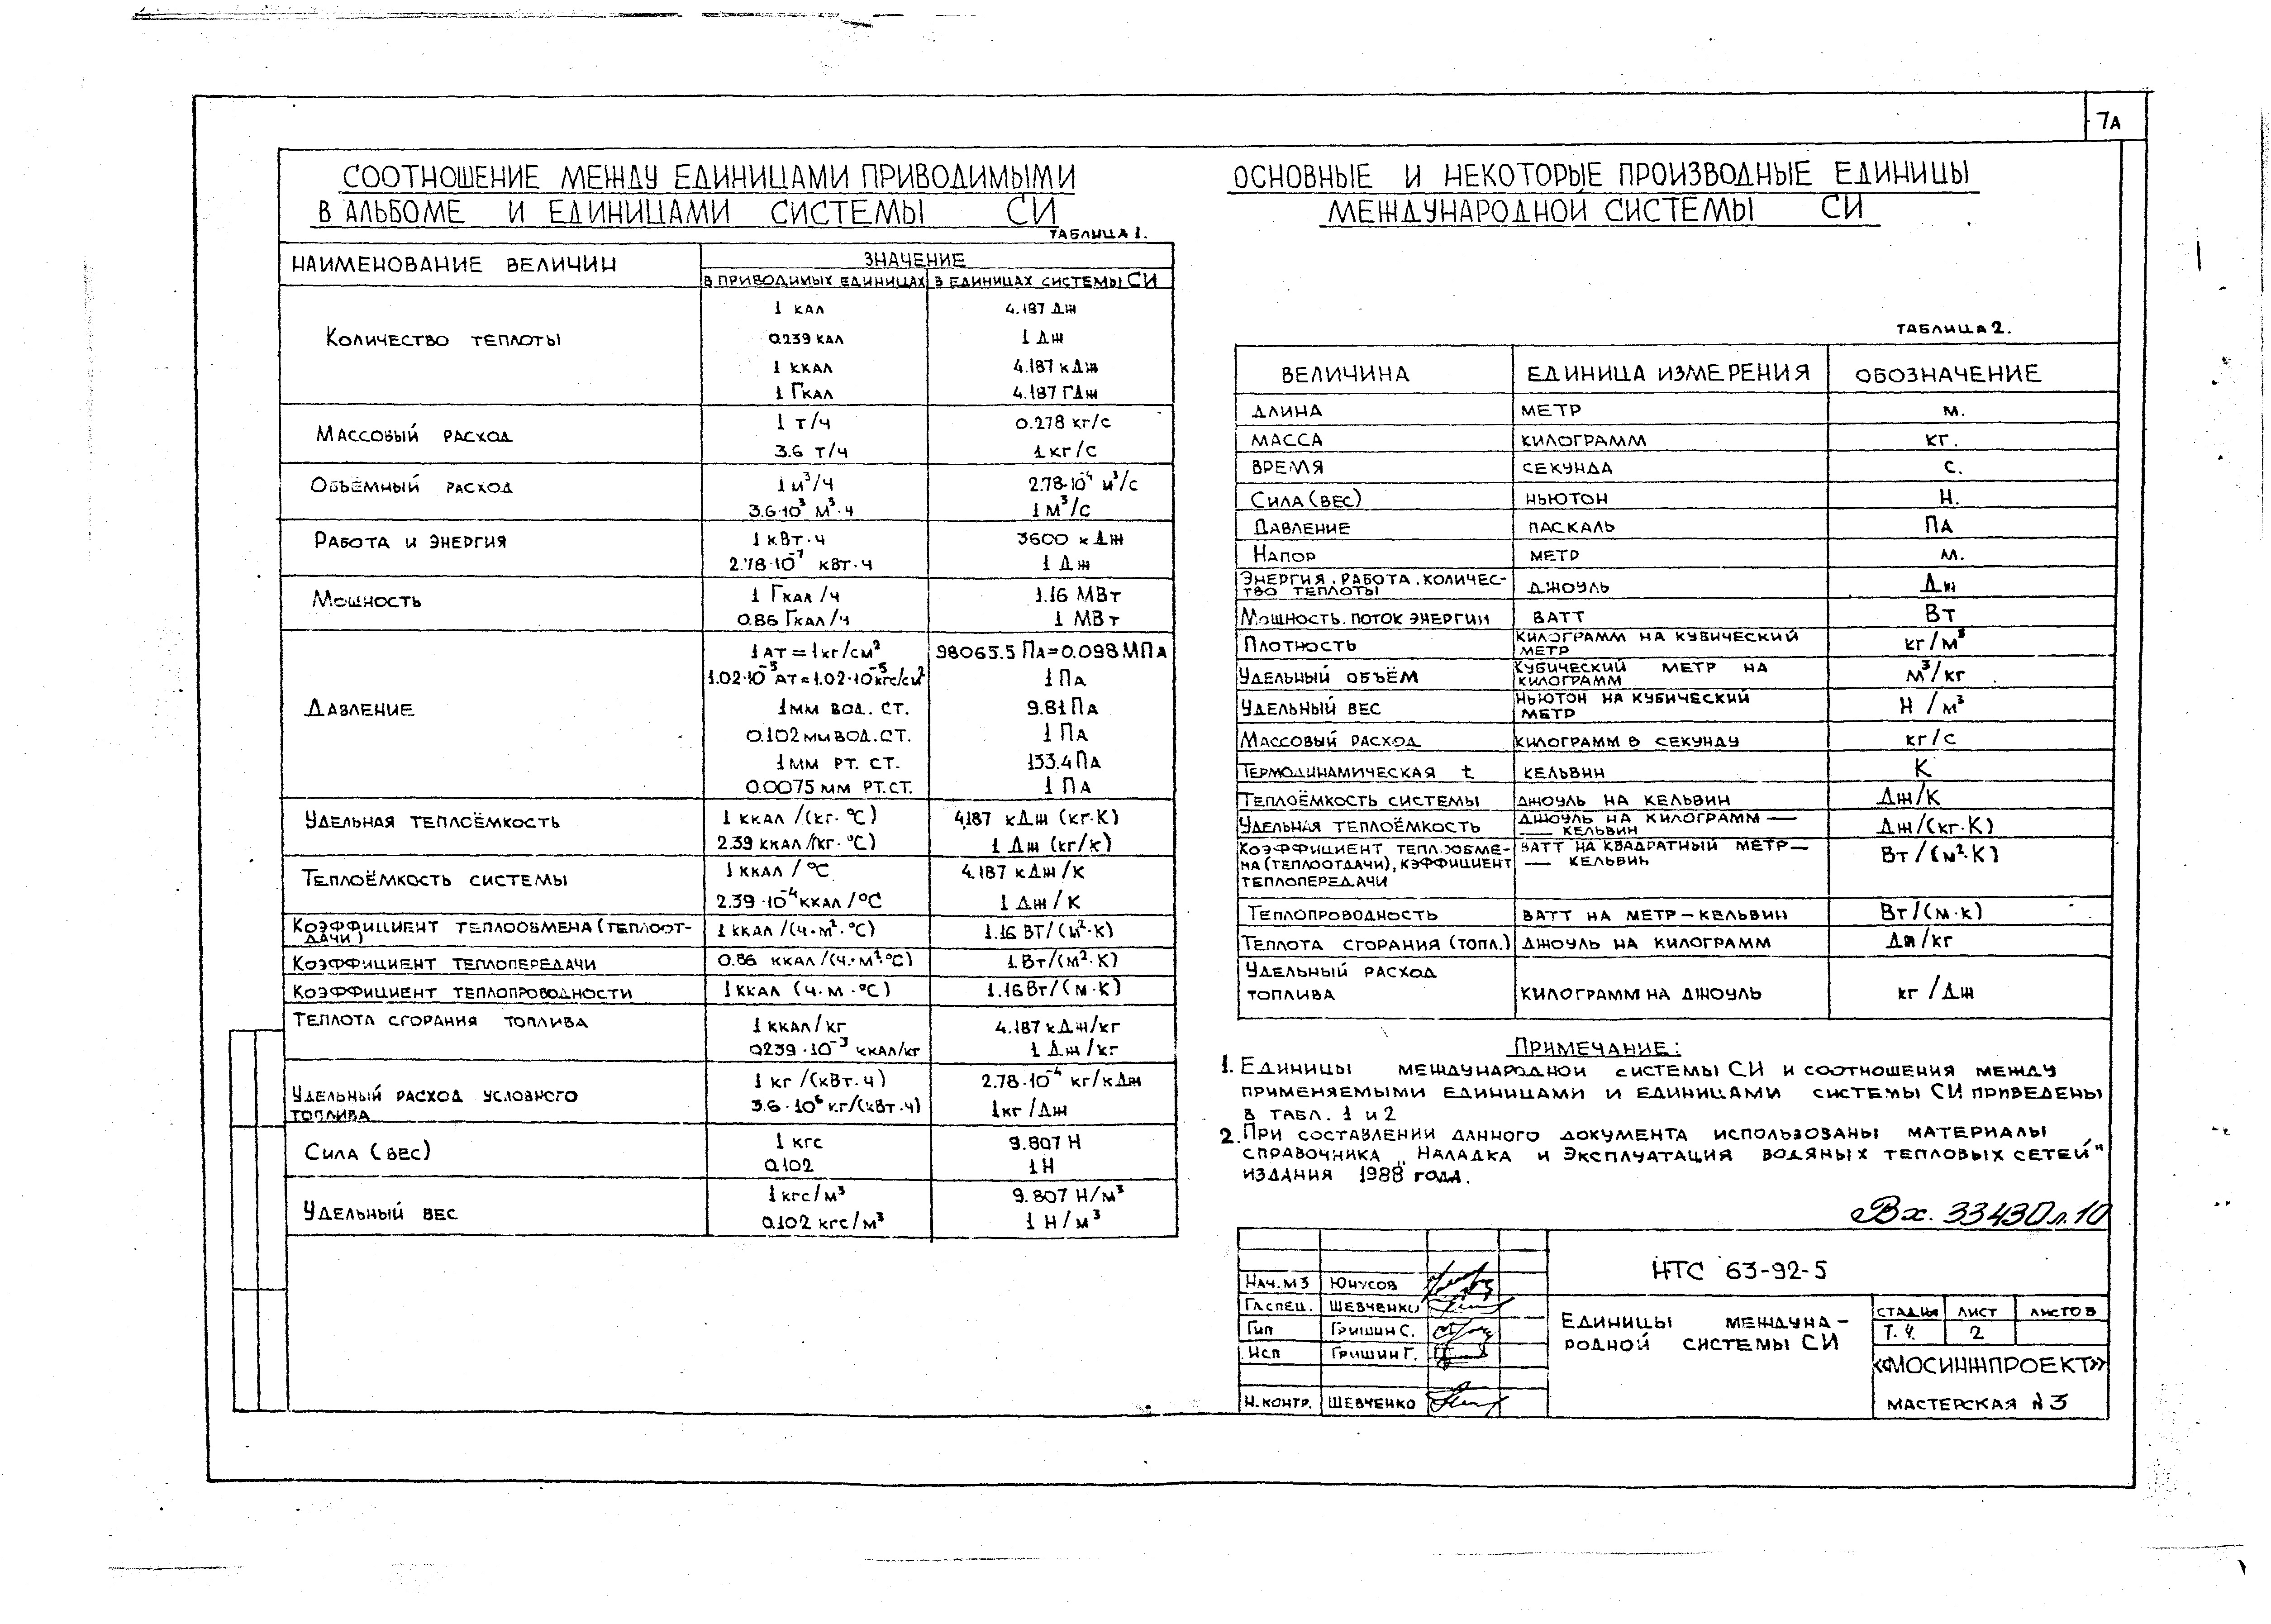 7А
СООТНОШЕНИЕ МЕЖДУ ЕДИНИЦАМИ ПРИВОДИМЫМИ
В АЛЬБОМЕ И ЕДИНИЦАМИ СИСТЕМЫ СИ
ТАБЛИЦА 1.
НАИМЕНОВАНИЕ ВЕЛИЧИН
ЗНАЧЕНИЕ
В ПРИВОДИМЫХ ЕДИНИЦАХ В ЕДИНИЦАХ СИСТЕМЫ СИ
Количество теплоты
1 кал 4.187 Дж
0.239 кал 1 Дж
1 ккал 4.187 кДж
1 Гкал 4.187 ГДж
Массовый расход
1 т/ч 0.278 кг/с
3.6 т/ч 1 кг/с
Объёмный расход
1 м³/ч 2.78·10⁻⁴ м³/с
3.6·10³ м³·ч 1 м³/с
Работа и энергия
1 кВт·ч 3600 кДж
2.78·10⁻⁷ кВт·ч 1 Дж
Мощность
1 Гкал/ч 1.16 МВт
0.86 Гкал/ч 1 МВт
Давление
1 ат = 1 кг/см² 98065.5 Па=0.098 МПа
1.02·10⁻⁵ ат = 1.02·10⁻⁵ кгс/см² 1 Па
1 мм вод. ст. 9.81 Па
0.102 мм вод. ст. 1 Па
1 мм рт. ст. 133.4 Па
0.0075 мм рт.ст. 1 Па
Удельная теплоёмкость
1 ккал /(кг·°С) 4.187 кДж (кг·К)
2.39 ккал /(кг·°С) 1 Дж (кг/к)
Теплоёмкость системы
1 ккал /°С 4.187 кДж/К
2.39·10⁻⁴ ккал/°С 1 Дж/К
Коэффициент теплообмена (теплоот-
дачи) 1 ккал /(ч·м²·°С) 1.16 Вт/(м²·К)
Коэффициент теплопередачи 0.86 ккал/(ч·м²·°С) 1.Вт/(м²·К)
Коэффициент теплопроводности 1 ккал (ч·м·°С) 1.16 Вт/(м·К)
Теплота сгорания топлива
1 ккал/кг 4.187 кДж/кг
0.239·10⁻³ ккал/кг 1 Дж/кг
Удельный расход условного
топлива
1 кг/(кВт·ч) 2.78·10⁻⁴ кг/кДж
3.6·10⁶ кг/(кВт·ч) 1 кг/Дж
Сила (вес)
1 кгс 9.807 Н
0.102 1 Н
Удельный вес
1 кгс/м³ 9.807 Н/м³
0.102 кгс/м³ 1 Н/м³
ОСНОВНЫЕ И НЕКОТОРЫЕ ПРОИЗВОДНЫЕ ЕДИНИЦЫ
МЕЖДУНАРОДНОЙ СИСТЕМЫ СИ
ТАБЛИЦА 2.
ВЕЛИЧИНА ЕДИНИЦА ИЗМЕРЕНИЯ ОБОЗНАЧЕНИЕ
Длина метр м.
Масса килограмм кг.
Время секунда с.
Сила (вес) ньютон Н.
Давление паскаль Па
Напор метр м.
Энергия. работа. количес-
тво теплоты джоуль Дж
Мощность. поток энергии ватт Вт
Плотность килограмм на кубический
метр кг/м³
Удельный объём кубический метр на
килограмм м³/кг
Удельный вес ньютон на кубический
метр Н/м³
Массовый расход килограмм в секунду кг/с
Термодинамическая t кельвин К
Теплоёмкость системы джоуль на кельвин Дж/К
Удельная теплоёмкость джоуль на килограмм —
— кельвин Дж/(кг·К)
Коэффициент теплообме-
на (теплоотдачи), кэффициент
теплопередачи
ватт на квадратный метр —
— кельвин Вт/(м²·К)
Теплопроводность ватт на метр — кельвин Вт/(м·к)
Теплота сгорания (топл.) джоуль на килограмм Дж/кг
Удельный расход
топлива килограмм на джоуль кг/Дж
Примечание:
1. Единицы международной системы СИ и соотношения между
применяемыми единицами и единицами системы СИ приведены
в табл. 1 и 2
2. При составлении данного документа использованы материалы
справочника „Наладка и эксплуатация водяных тепловых сетей"
издания 1988 года.
Вх. 33430 л. 10
Нач. М3 Юнусов
Гл.спец. Шевченко
Гип Гришин С.
Исп Гришин Г.
Н. контр. Шевченко
НТС 63-92-5
Единицы междуна-
родной системы СИ
СТАДИЯ ЛИСТ ЛИСТОВ
Т. Ч. 2
«МОСИНЖПРОЕКТ»
МАСТЕРСКАЯ N3